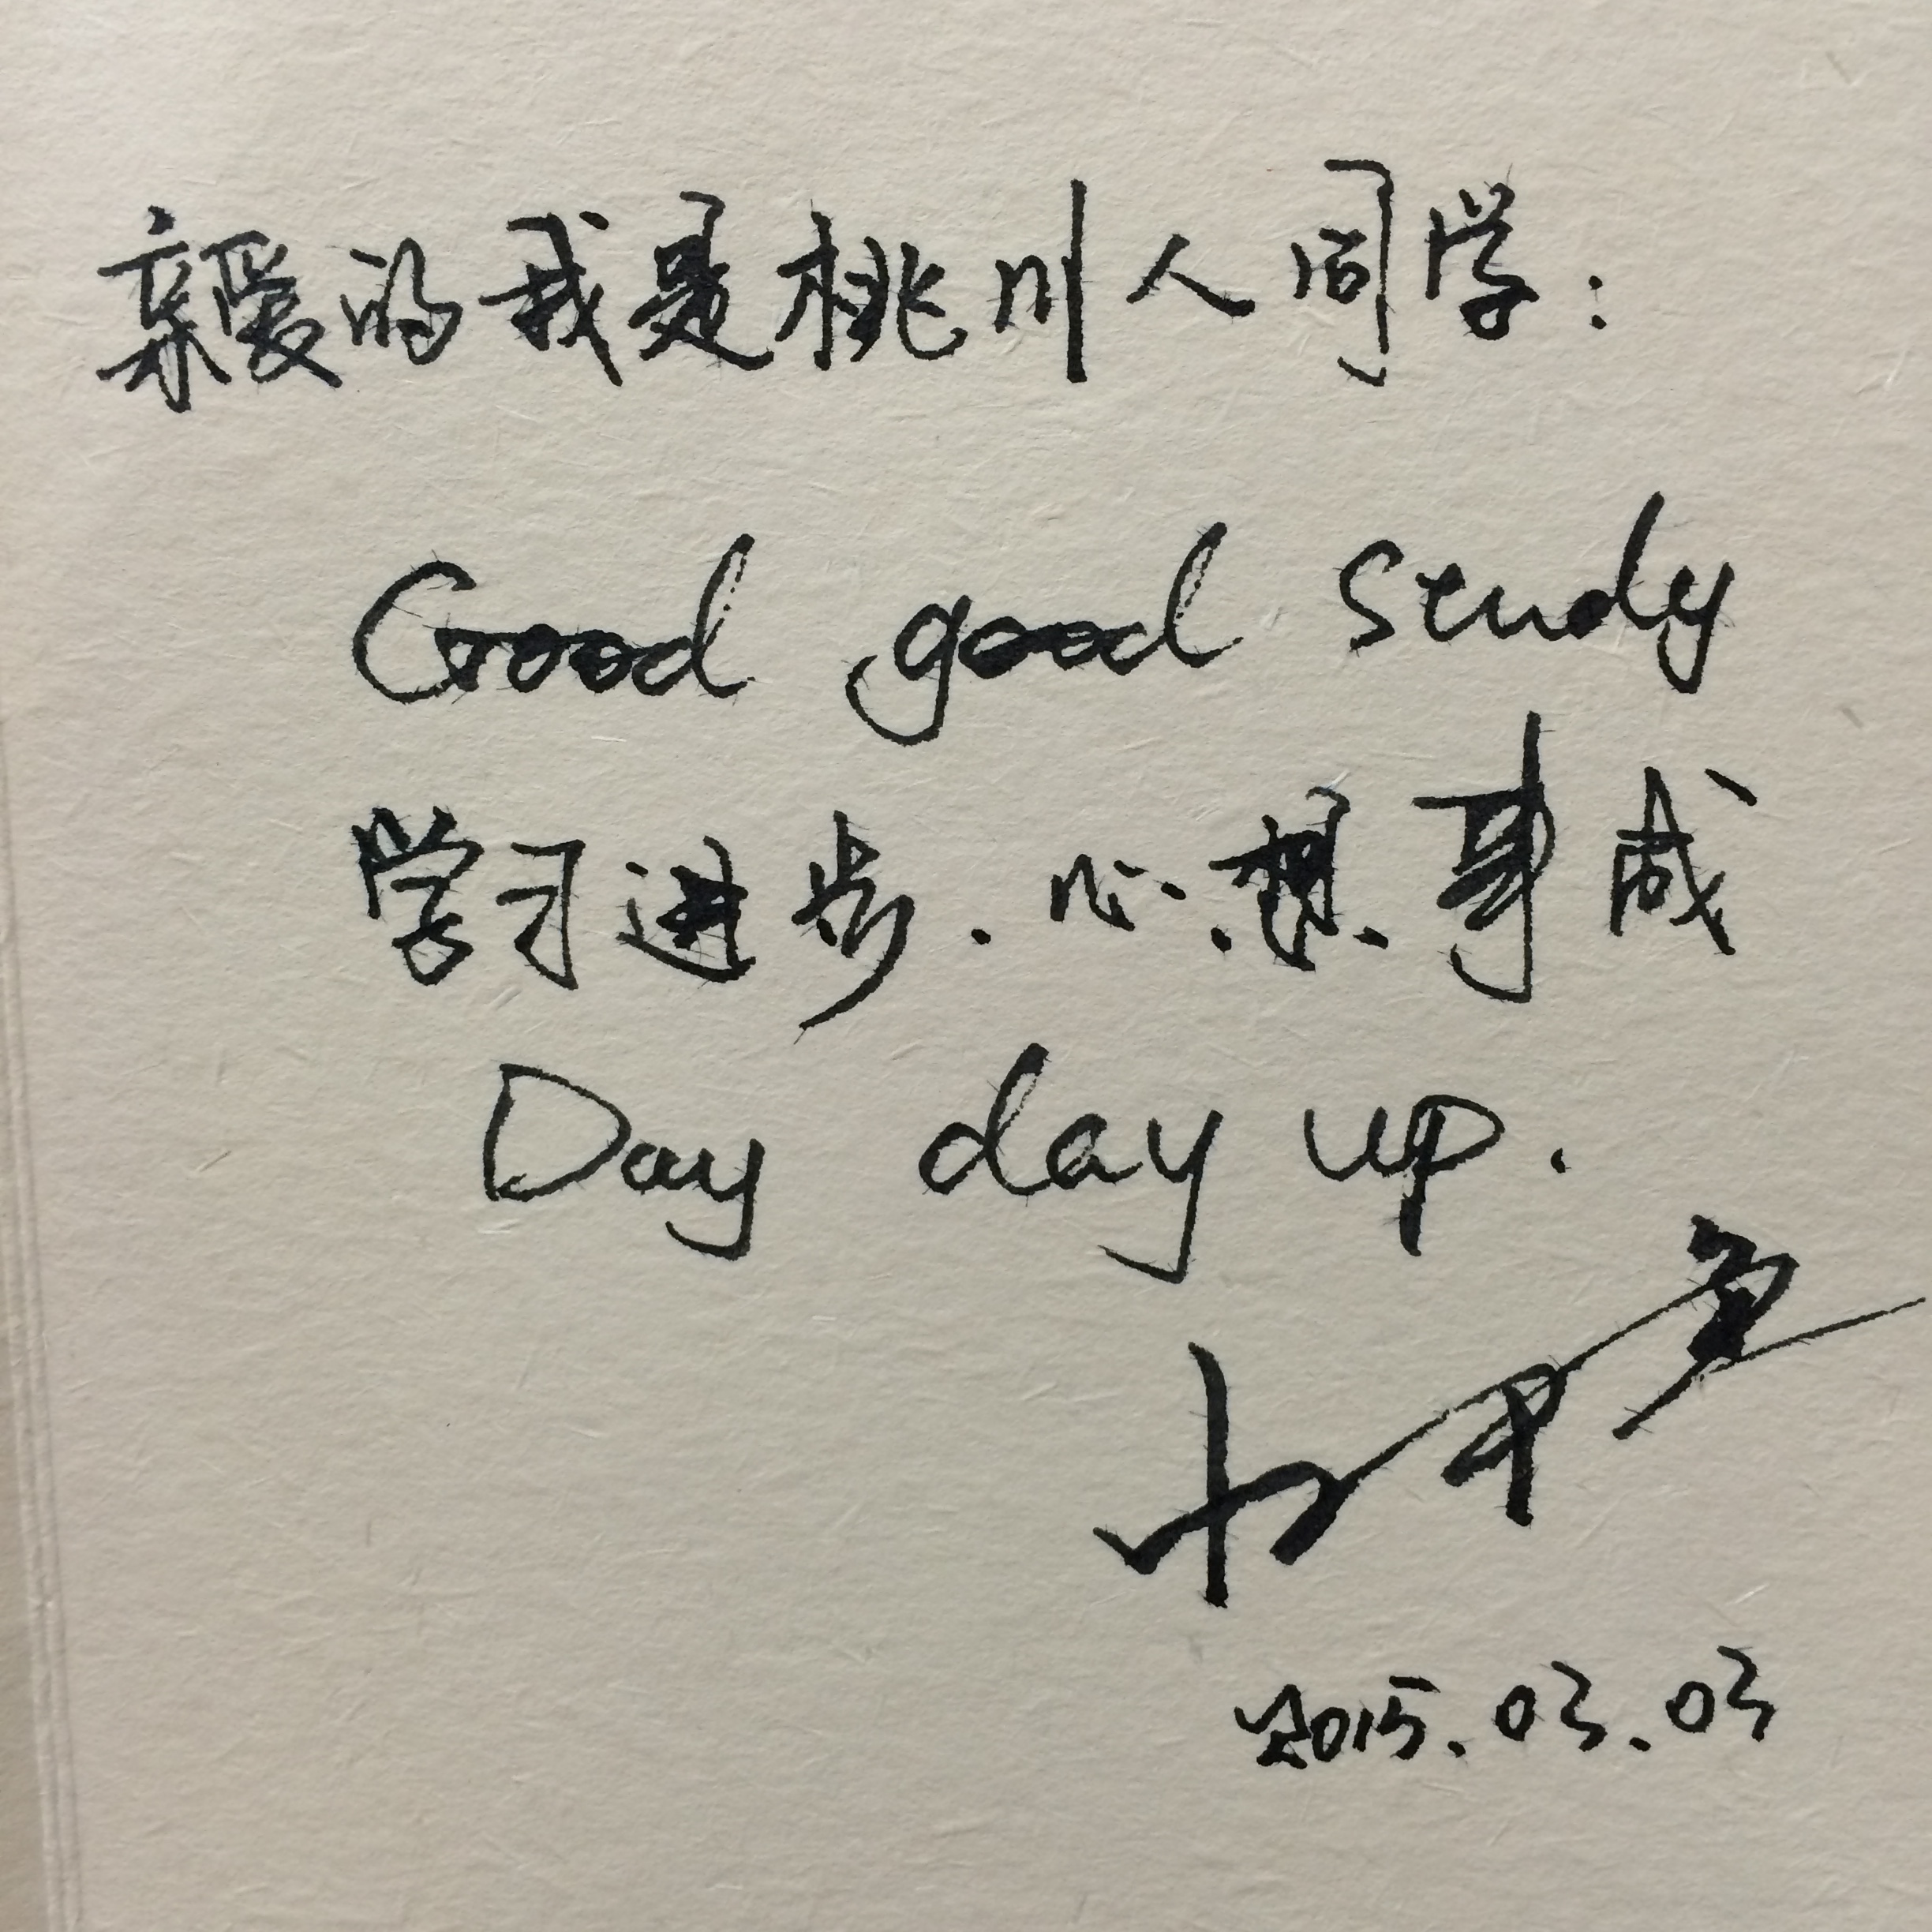 亲爱的我是桃川人同学:
Good good study
学习进步.心想事成
Day day up.
2015.03.03